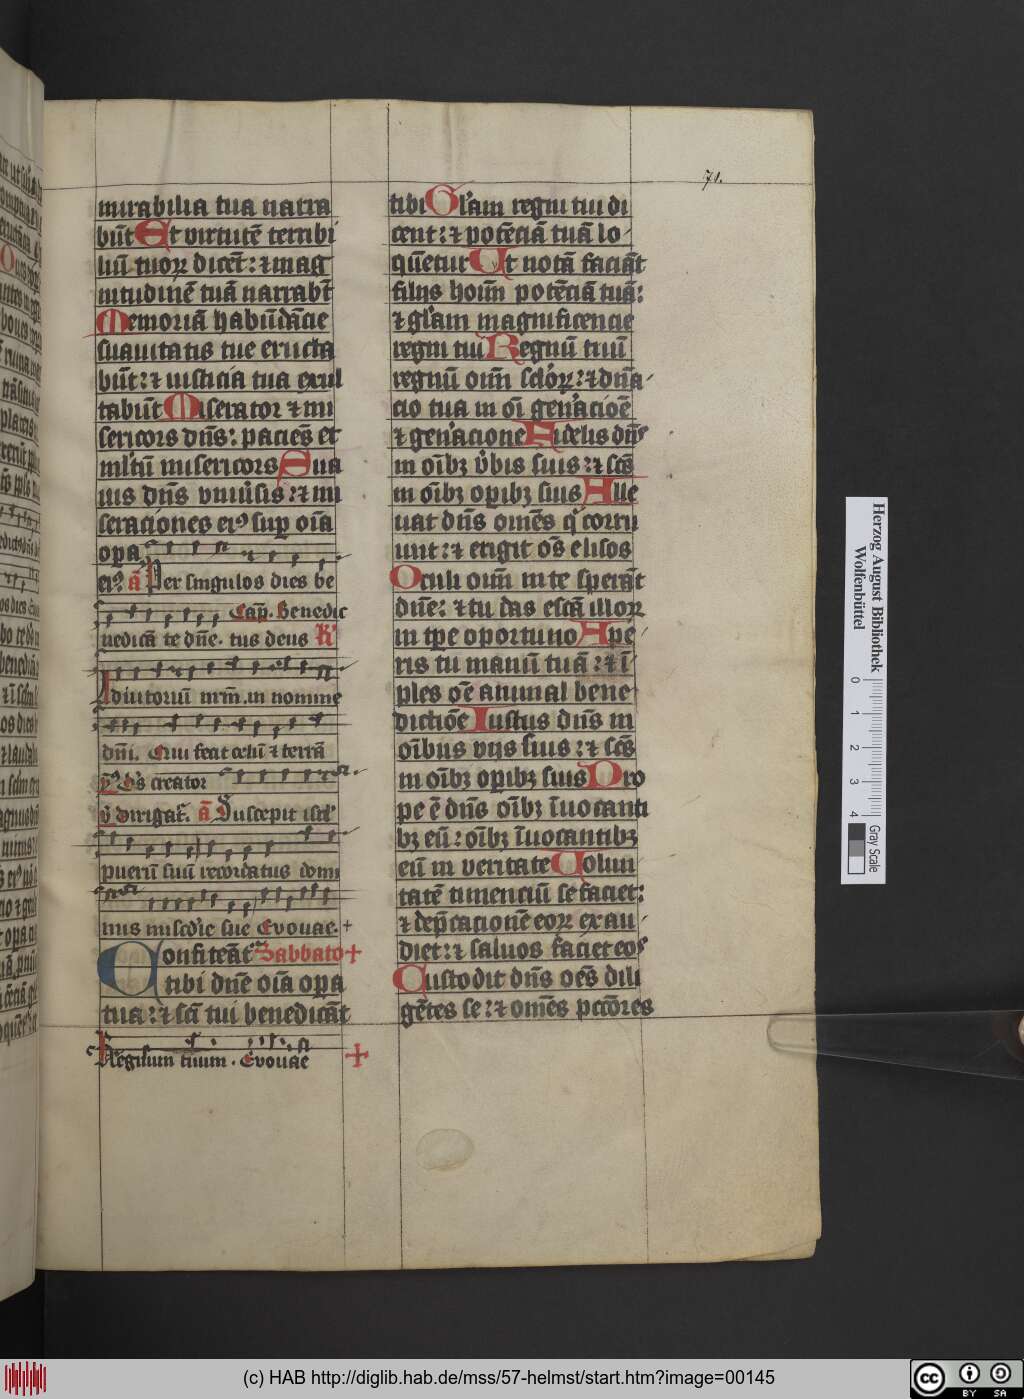 71.
mirabilia tua narra
būt Et virtutē terribi
liū tuoꝝ dicēt: ⁊ mag
nitudinē tuā narrabt̄
Memoriā habūdācie
suauitatis tue eructa
būt: ⁊ iusticia tua exul
tabūt Miserator ⁊ mi
sericors dn̄s: paciēs et
ml̓tū misericors Sua
uis dn̄s vniu̓sis: ⁊ mi
seraciones eiꝰ sup oīa
opa
eiꝰ. ā Per singulos dies be
nedicā te dn̄e. Cap̄. Benedic
tus deus R̓
Adiutoriū nr̄m. in nomine
dn̄i. Qui fecit celū ⁊ terrā
v̓ Q's creator
v̓ dirigat̄. ā Suscepit isrl̓
puerū suū recordatus domi
nus misc̄die sue Evovae. +
Confiteāt̄ Sabbato +
tibi dn̄e oīa opa
tua: ⁊ sc̄i tui benedicāt
Regnum tuum. Evovae +
tibi Gl̓am regni tui di
cent: ⁊ potēciā tuā lo
quētur Ut notā faciāt
filijs hoīm potēciā tuā:
⁊ gl̓am magnificencie
regni tui Regnū tuū
regnū oīm sclóꝝ: ⁊ dn̄a
cio tua in oī gen̓acioē
⁊ gen̓acione Fidelis dn̄s
in oībꝫ v̓bis suis: ⁊ sc̄s
in oībꝫ opibꝫ suis Alle
uat dn̄s omēs q̓ corru
unt: ⁊ erigit oēs elisos
Oculi oīm in te sperāt
dn̄e: ⁊ tu das escā illoꝝ
in tpe oportuno Apé
ris tu manū tuā: ⁊ ī
ples oē animal bene
dictiōe Iustus dn̄s in
oībus vijs suis: ⁊ sc̄s
in oībꝫ opibꝫ suis Pro
pe ē dn̄s oībꝫ īuocanti
bꝫ eū: oībꝫ īuocantibꝫ
eū in veritate Uolun
tatē timenciū se faciet:
⁊ dep̄cacionē eoꝝ exau
diet: ⁊ saluos faciet eos
Custodit dn̄s oēs dili
gētes se: ⁊ omēs pctōres
Herzog August Bibliothek
Wolfenbüttel
0 1 2 3 4
Gray Scale
(c) HAB http://diglib.hab.de/mss/57-helmst/start.htm?image=00145
cc BY SA